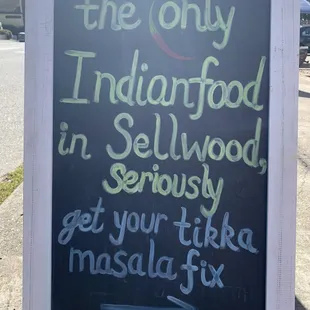 the (only
Indian food
in Sellwood,
Seriously
get your tikka
masala fix